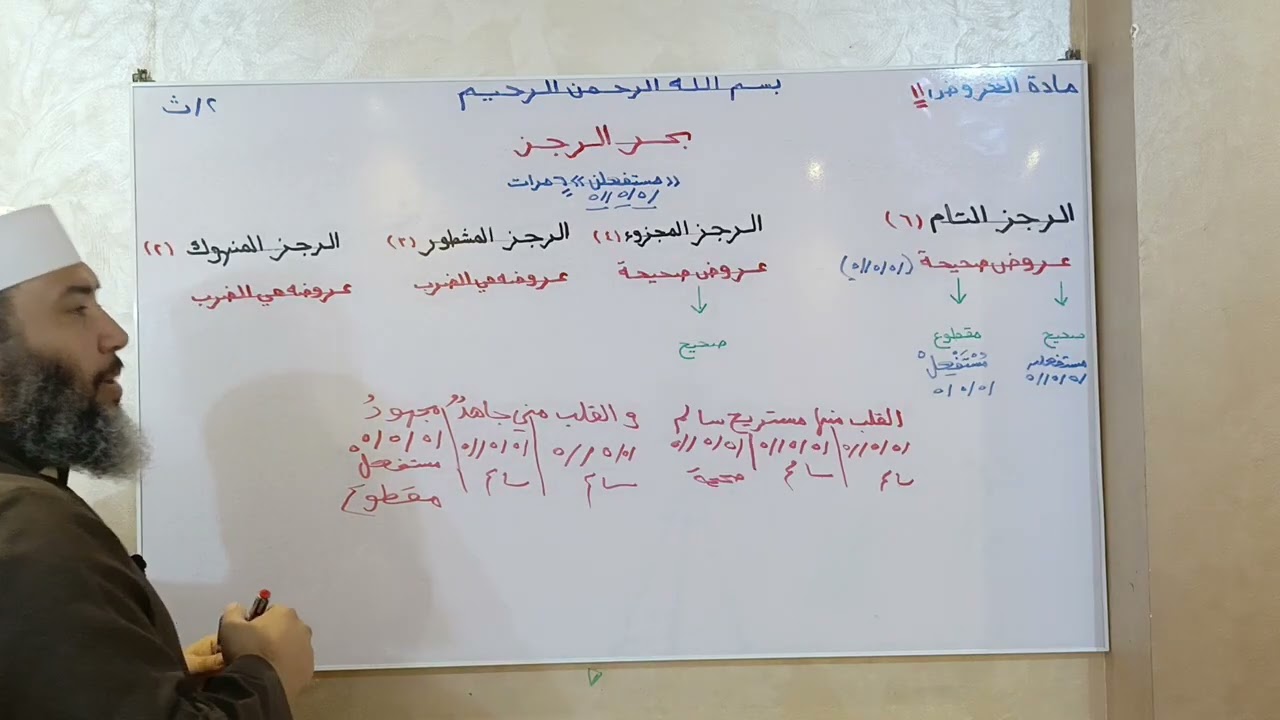 مادة العروض ١١
بسم الله الرحمن الرحيم
٢/ث
بحر الرجز
«مستفعلن» ٦ مرات
/٥/٥//٥
الرجز التام (٦)
الرجز المجزوء (٤)
الرجز المشطور (٣)
الرجز المنهوك (٢)
عروض صحيحة (/٥/٥//٥)
عروض صحيحة
عروضه هي الضرب
عروضه هي الضرب
صحيح
مقطوع
صحيح
مستفعلن
مُسْتَفْعِلْ
/٥/٥//٥
/٥/٥/٥
القلب منها مستريح سالم
و القلب مني جاهدٌ مجهودُ
/٥/٥//٥ /٥/٥//٥ /٥/٥//٥
/٥/٥//٥ /٥/٥//٥ /٥/٥/٥
مستفعلْ
سالم سالم صحيحة
سالم سالم مقطوع